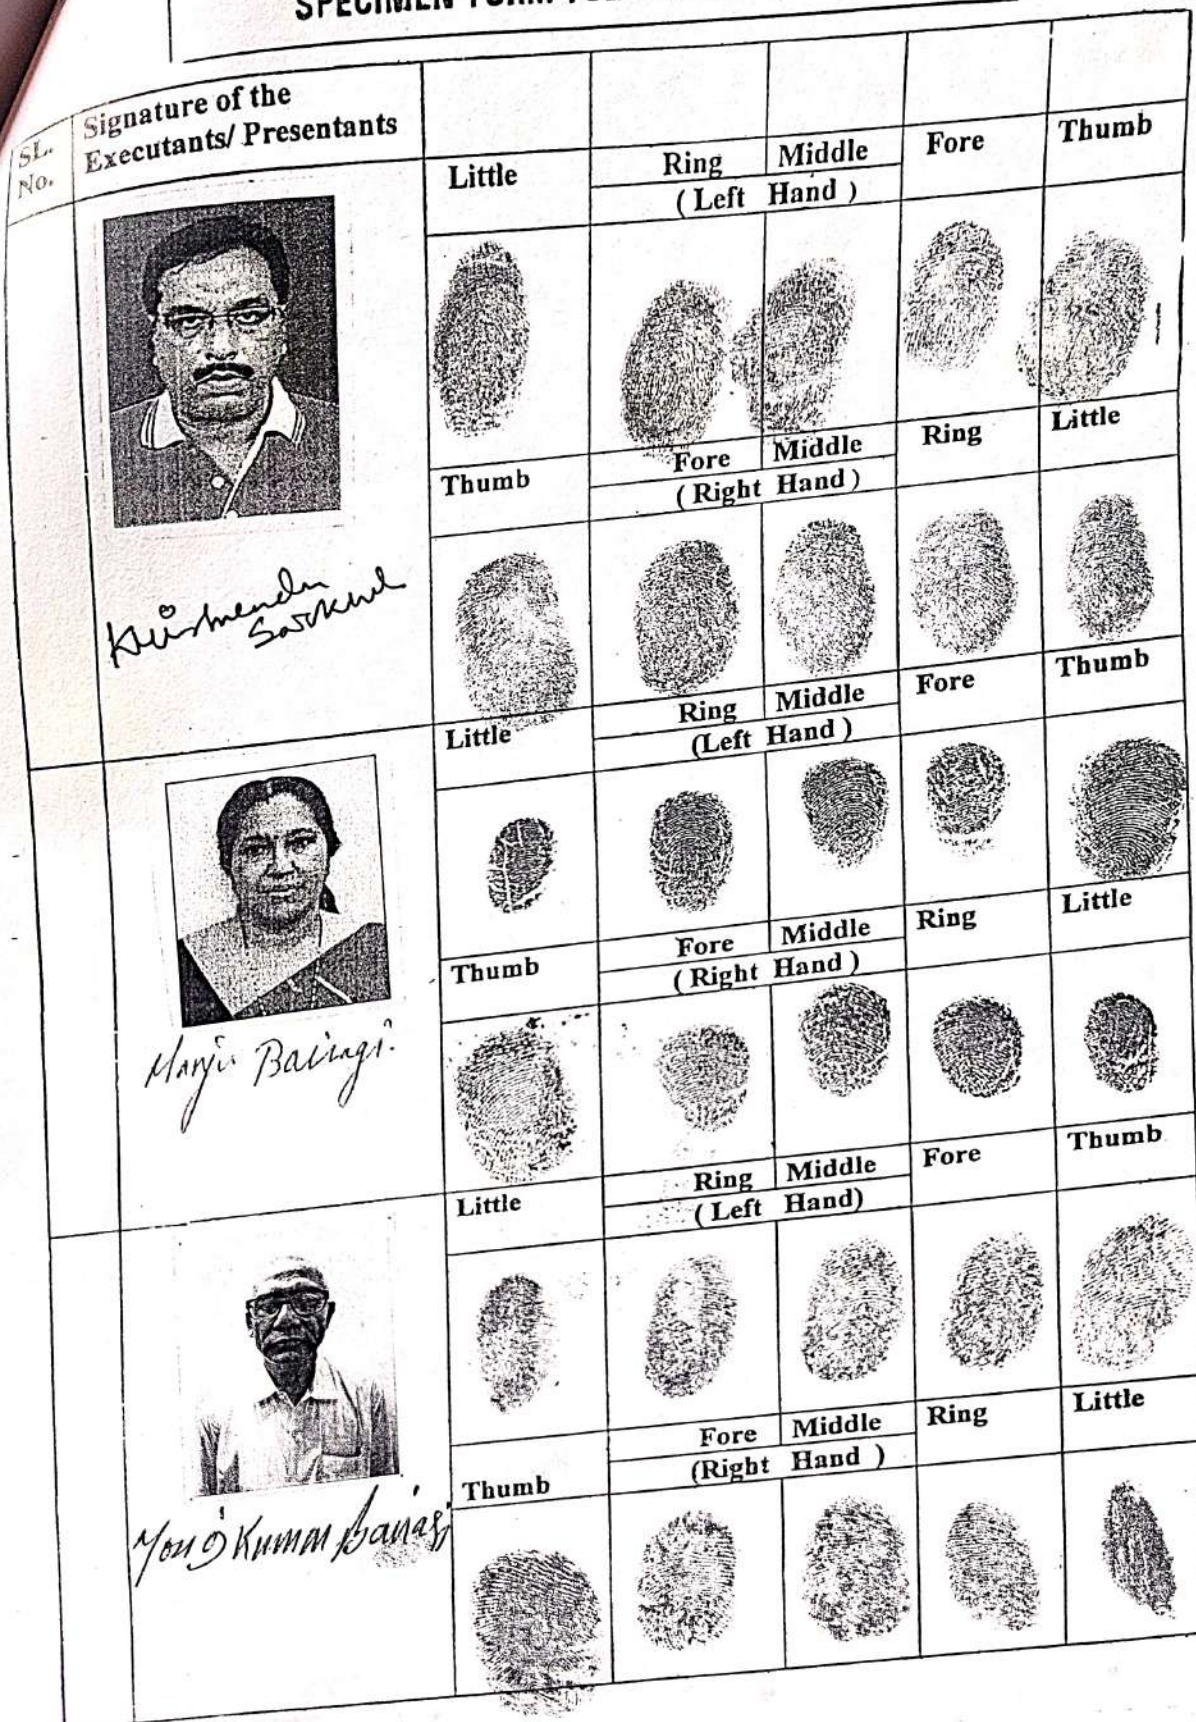 SPECIMEN FORM
SL. No.
Signature of the
Executants/ Presentants
Little Ring Middle Fore Thumb
( Left Hand )
Thumb Fore Middle Ring Little
( Right Hand )
Krishnendu
Sarkhel
Little Ring Middle Fore Thumb
(Left Hand )
Thumb Fore Middle Ring Little
( Right Hand )
Manju Bairagi.
Little Ring Middle Fore Thumb
( Left Hand)
Thumb Fore Middle Ring Little
(Right Hand )
Kumar Bairagi